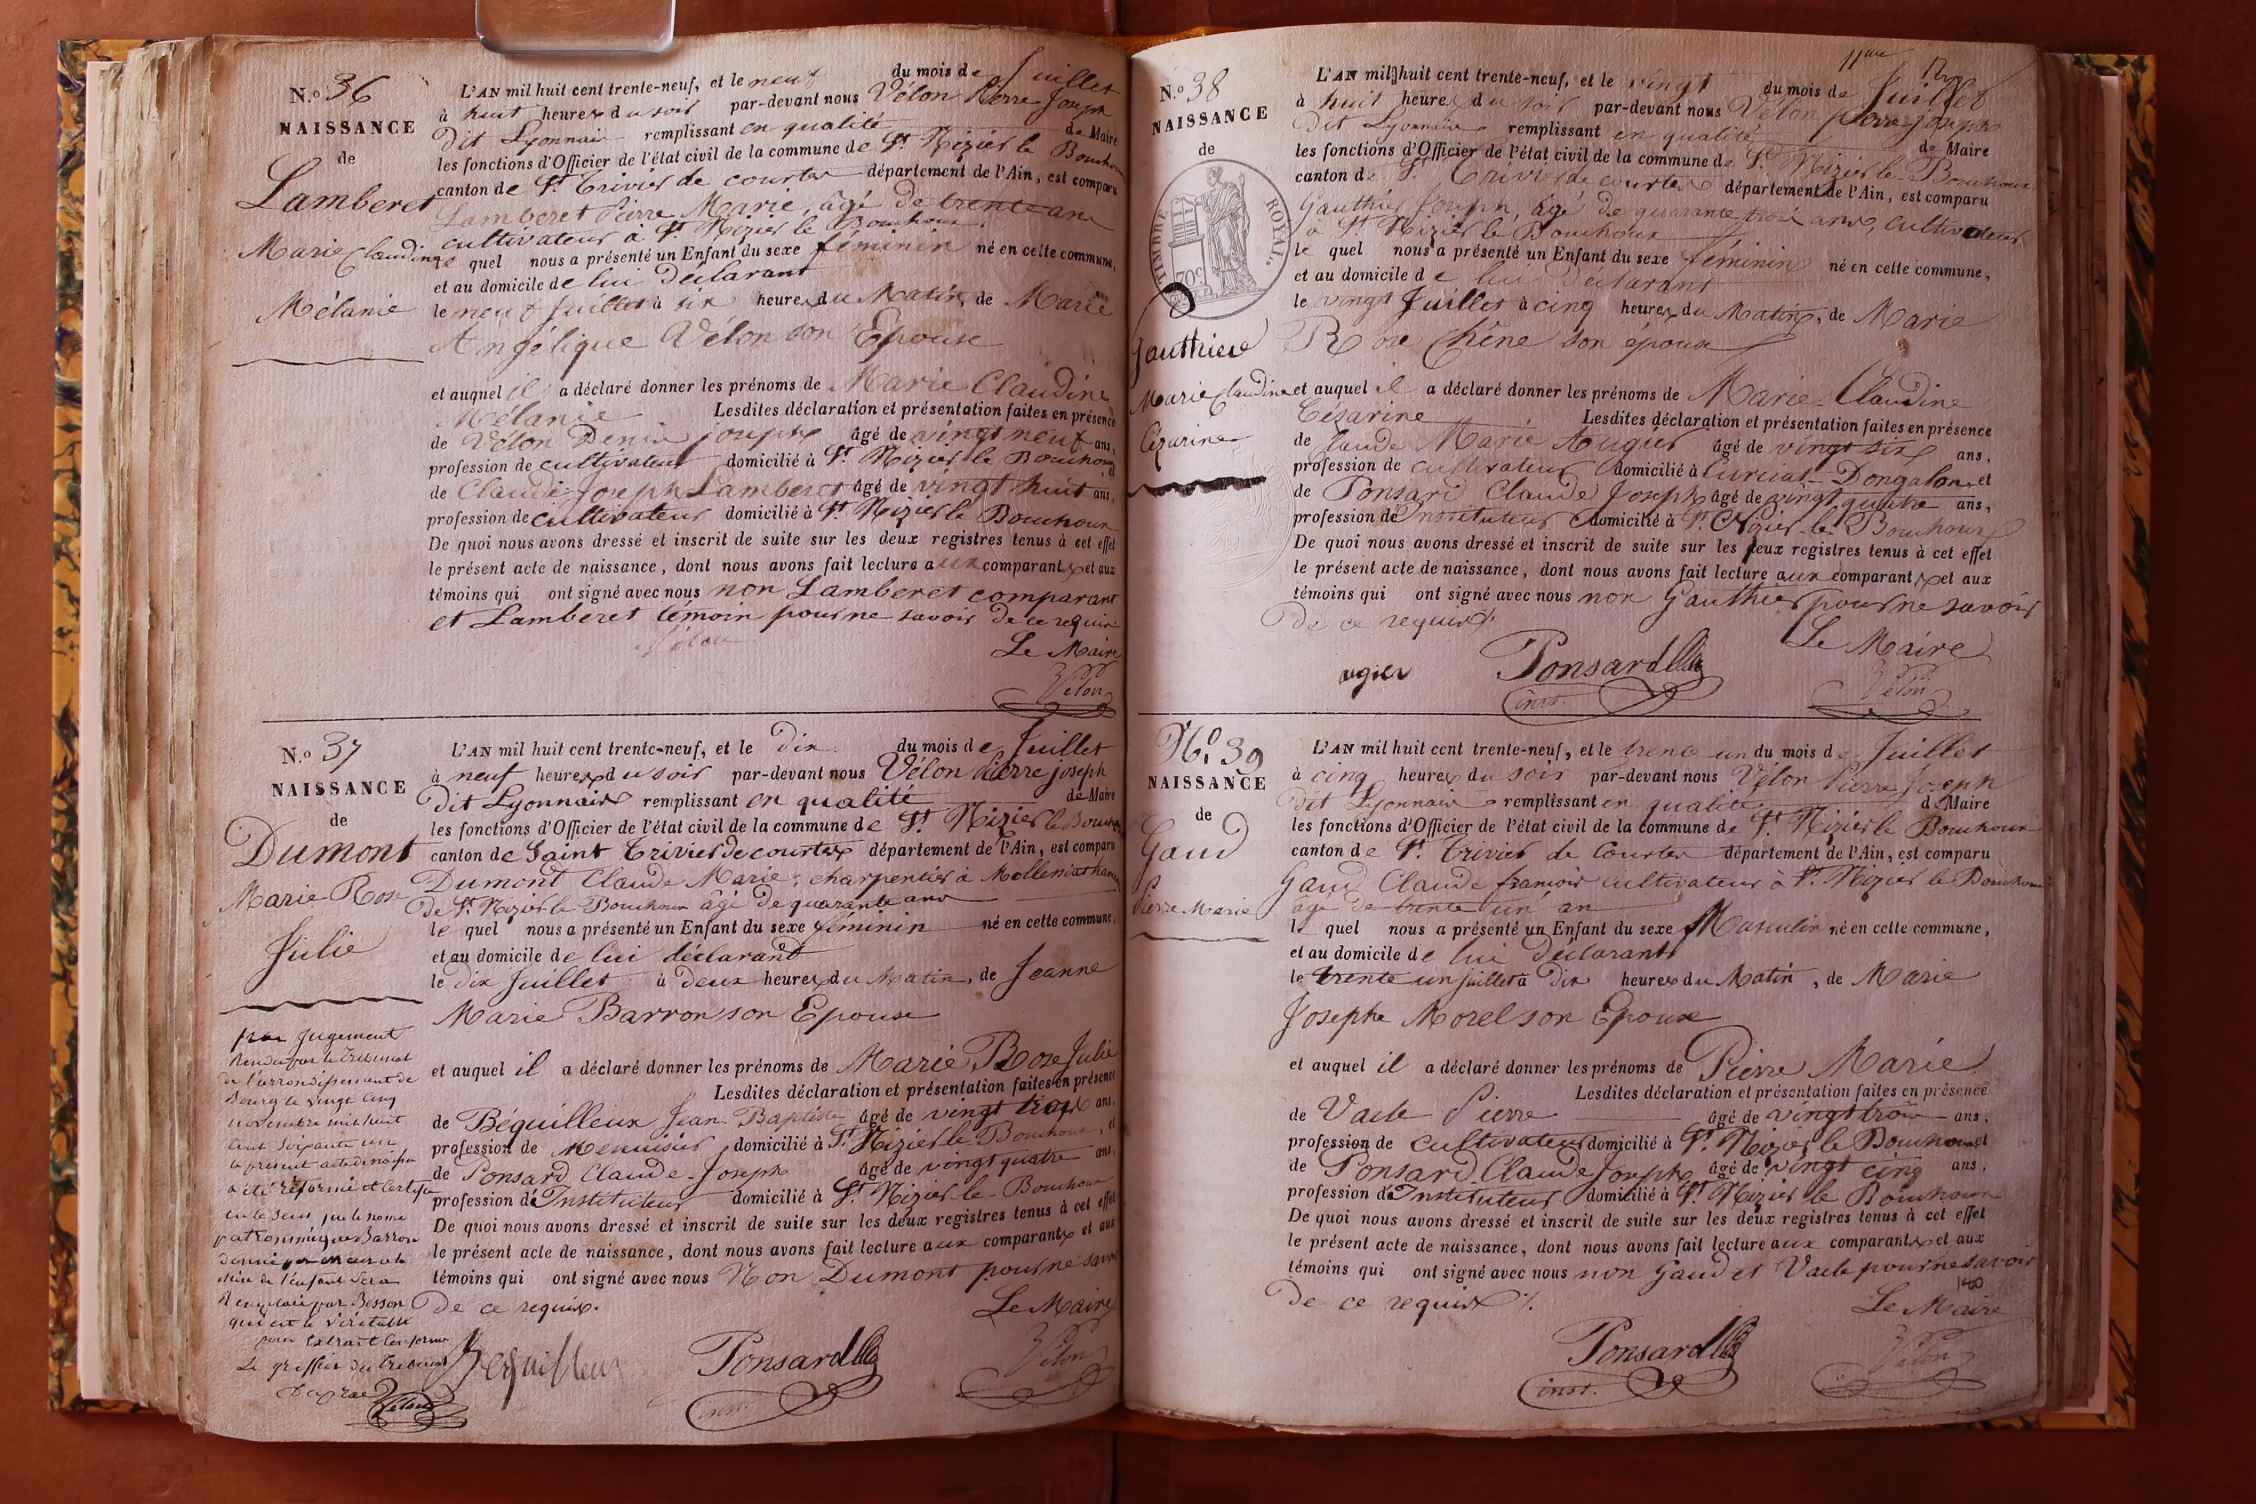 N.º 36
NAISSANCE
de
Lamberet
Marie Claudine
Mélanie
L'AN mil huit cent trente-neuf, et le neuf du mois de Juillet
à huit heures du soir par-devant nous Vélon Pierre Joseph
dit Lyonnais remplissant en qualité de Maire
les fonctions d'Officier de l'état civil de la commune de St Nizier le Bouchoux
canton de St Trivier de courtes département de l'Ain, est comparu
Lamberet Pierre Marie, âgé de trente ans
cultivateur à St Nizier le Bouchoux
le quel nous a présenté un Enfant du sexe féminin né en cette commune,
et au domicile de lui Déclarant
le neuf Juillet à six heures du Matin, de Marie
Angélique Vélon son Epouse
et auquel il a déclaré donner les prénoms de Marie Claudine
Mélanie Lesdites déclaration et présentation faites en présence
de Vélon Denis joseph âgé de vingt neuf ans,
profession de cultivateur domicilié à St Nizier le Bouchoux et
de Claude Joseph Lamberet âgé de vingt huit ans,
profession de cultivateur domicilié à St Nizier le Bouchoux
De quoi nous avons dressé et inscrit de suite sur les deux registres tenus à cet effet
le présent acte de naissance, dont nous avons fait lecture aux comparants et aux
témoins qui ont signé avec nous non Lamberet comparant
et Lamberet témoin pour ne savoir de ce requis
Vélon
Le Maire
Vélon
N.º 37
NAISSANCE
de
Dumont
Marie Rose
Julie
L'AN mil huit cent trente-neuf, et le dix du mois de Juillet
à neuf heures du soir par-devant nous Vélon Pierre joseph
dit Lyonnais remplissant en qualité de Maire
les fonctions d'Officier de l'état civil de la commune de St Nizier le Bouchoux
canton de Saint Trivier de courtes département de l'Ain, est comparu
Dumont Claude Marie, charpentier à
de St Nizier le Bouchoux âgé de quarante ans
le quel nous a présenté un Enfant du sexe féminin né en cette commune,
et au domicile de lui déclarant
le dix Juillet à deux heures du Matin, de Jeanne
Marie Barron son Epouse
et auquel il a déclaré donner les prénoms de Marie Rose Julie
Lesdites déclaration et présentation faites en présence
de Béquilleux Jean Baptiste âgé de vingt trois ans,
profession de Menuisier domicilié à St Nizier le Bouchoux, et
de Ponsard Claude Joseph âgé de vingt quatre ans,
profession de Instituteur domicilié à St Nizier le Bouchoux
De quoi nous avons dressé et inscrit de suite sur les deux registres tenus à cet effet
le présent acte de naissance, dont nous avons fait lecture aux comparants et aux
témoins qui ont signé avec nous Non Dumont pour ne savoir
de ce requis.
Le Maire
Ponsard
inst.
Vélon
par jugement
Rendu par le tribunal
de l'arrondissement de
Bourg le vingt cinq
novembre mil huit
cent soixante un
le présent acte de
a été réformé et
en ce sens que le nom
patronimique Barron
donné
mère de l'enfant sera
Remplacé par Besson
qui est le véritable
pour Extrait conforme
Le greffier du Tribunal
11me
N.º 38
NAISSANCE
de
TIMBRE ROYAL
70c
Gauthier
Marie Claudine
Cézarine
L'AN mil huit cent trente-neuf, et le vingt du mois de Juillet
à huit heures du soir par-devant nous Vélon pierre joseph
dit Lyonnais remplissant en qualité de Maire
les fonctions d'Officier de l'état civil de la commune de St Nizier le Bouchoux
canton de St Trivier de courtes département de l'Ain, est comparu
Gauthier Joseph, âgé de quarante trois ans, cultivateur
à St Nizier le Bouchoux
le quel nous a présenté un Enfant du sexe féminin né en cette commune,
et au domicile de lui Déclarant
le vingt Juillet à cinq heures du Matin, de Marie
Rose Chêne son épouse
et auquel il a déclaré donner les prénoms de Marie Claudine
Césarine Lesdites déclaration et présentation faites en présence
de Claude Marie Augier âgé de vingt six ans,
profession de cultivateur domicilié à Curciat-Dongalon, et
de Ponsard Claude Joseph âgé de vingt quatre ans,
profession de Instituteur domicilié à St Nizier le Bouchoux
De quoi nous avons dressé et inscrit de suite sur les deux registres tenus à cet effet
le présent acte de naissance, dont nous avons fait lecture aux comparants et aux
témoins qui ont signé avec nous non Gauthier pour ne savoir
de ce requis
Le Maire
ogier
Ponsard
inst.
Vélon
No. 39
NAISSANCE
de
Gaud
Pierre Marie
L'AN mil huit cent trente-neuf, et le trente un du mois de Juillet
à cinq heures du soir par-devant nous Vélon Pierre Joseph
dit Lyonnais remplissant en qualité de Maire
les fonctions d'Officier de l'état civil de la commune de St Nizier le Bouchoux
canton de St Trivier de Courtes département de l'Ain, est comparu
Gaud Claude francois cultivateur à St Nizier le Bouchoux
âgé de trente un an
le quel nous a présenté un Enfant du sexe Masculin né en cette commune,
et au domicile de lui Déclarant
le trente un juillet à dix heures du Matin, de Marie
Josephe Morel son Epouse
et auquel il a déclaré donner les prénoms de Pierre Marie
Lesdites déclaration et présentation faites en présence
de Pierre âgé de vingt trois ans,
profession de cultivateur domicilié à St Nizier le Bouchoux et
de Ponsard Claude Joseph âgé de vingt cinq ans,
profession de Instituteur domicilié à St Nizier le Bouchoux
De quoi nous avons dressé et inscrit de suite sur les deux registres tenus à cet effet
le présent acte de naissance, dont nous avons fait lecture aux comparants et aux
témoins qui ont signé avec nous non Gaud et pour ne savoir
de ce requis
Le Maire
Ponsard
inst.
Vélon